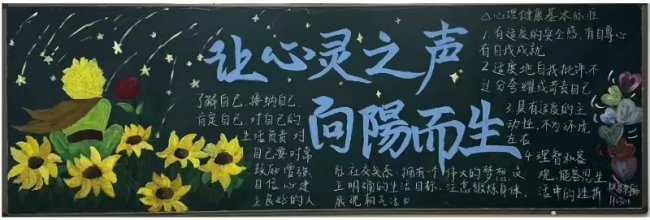 让心灵之声
向陽而生
了解自己、接纳自己、
肯定自己、对自己的
生活负责对
自己要时常
鼓励增强
自信心建
立良好的人
际社交关系,拥有个
上明确的生活目标,
展现朝气活力
伟大的梦想,这
注意锻炼身体,
△心理健康基本标准
1.有适度的安全感,有自尊心
有自我成就
2.适度地自我批评不
过分夸耀或苛责自己
3.具有适度的主
动性,不为环境
左右
4.理智和客
观,能忍受生
活中的挫折